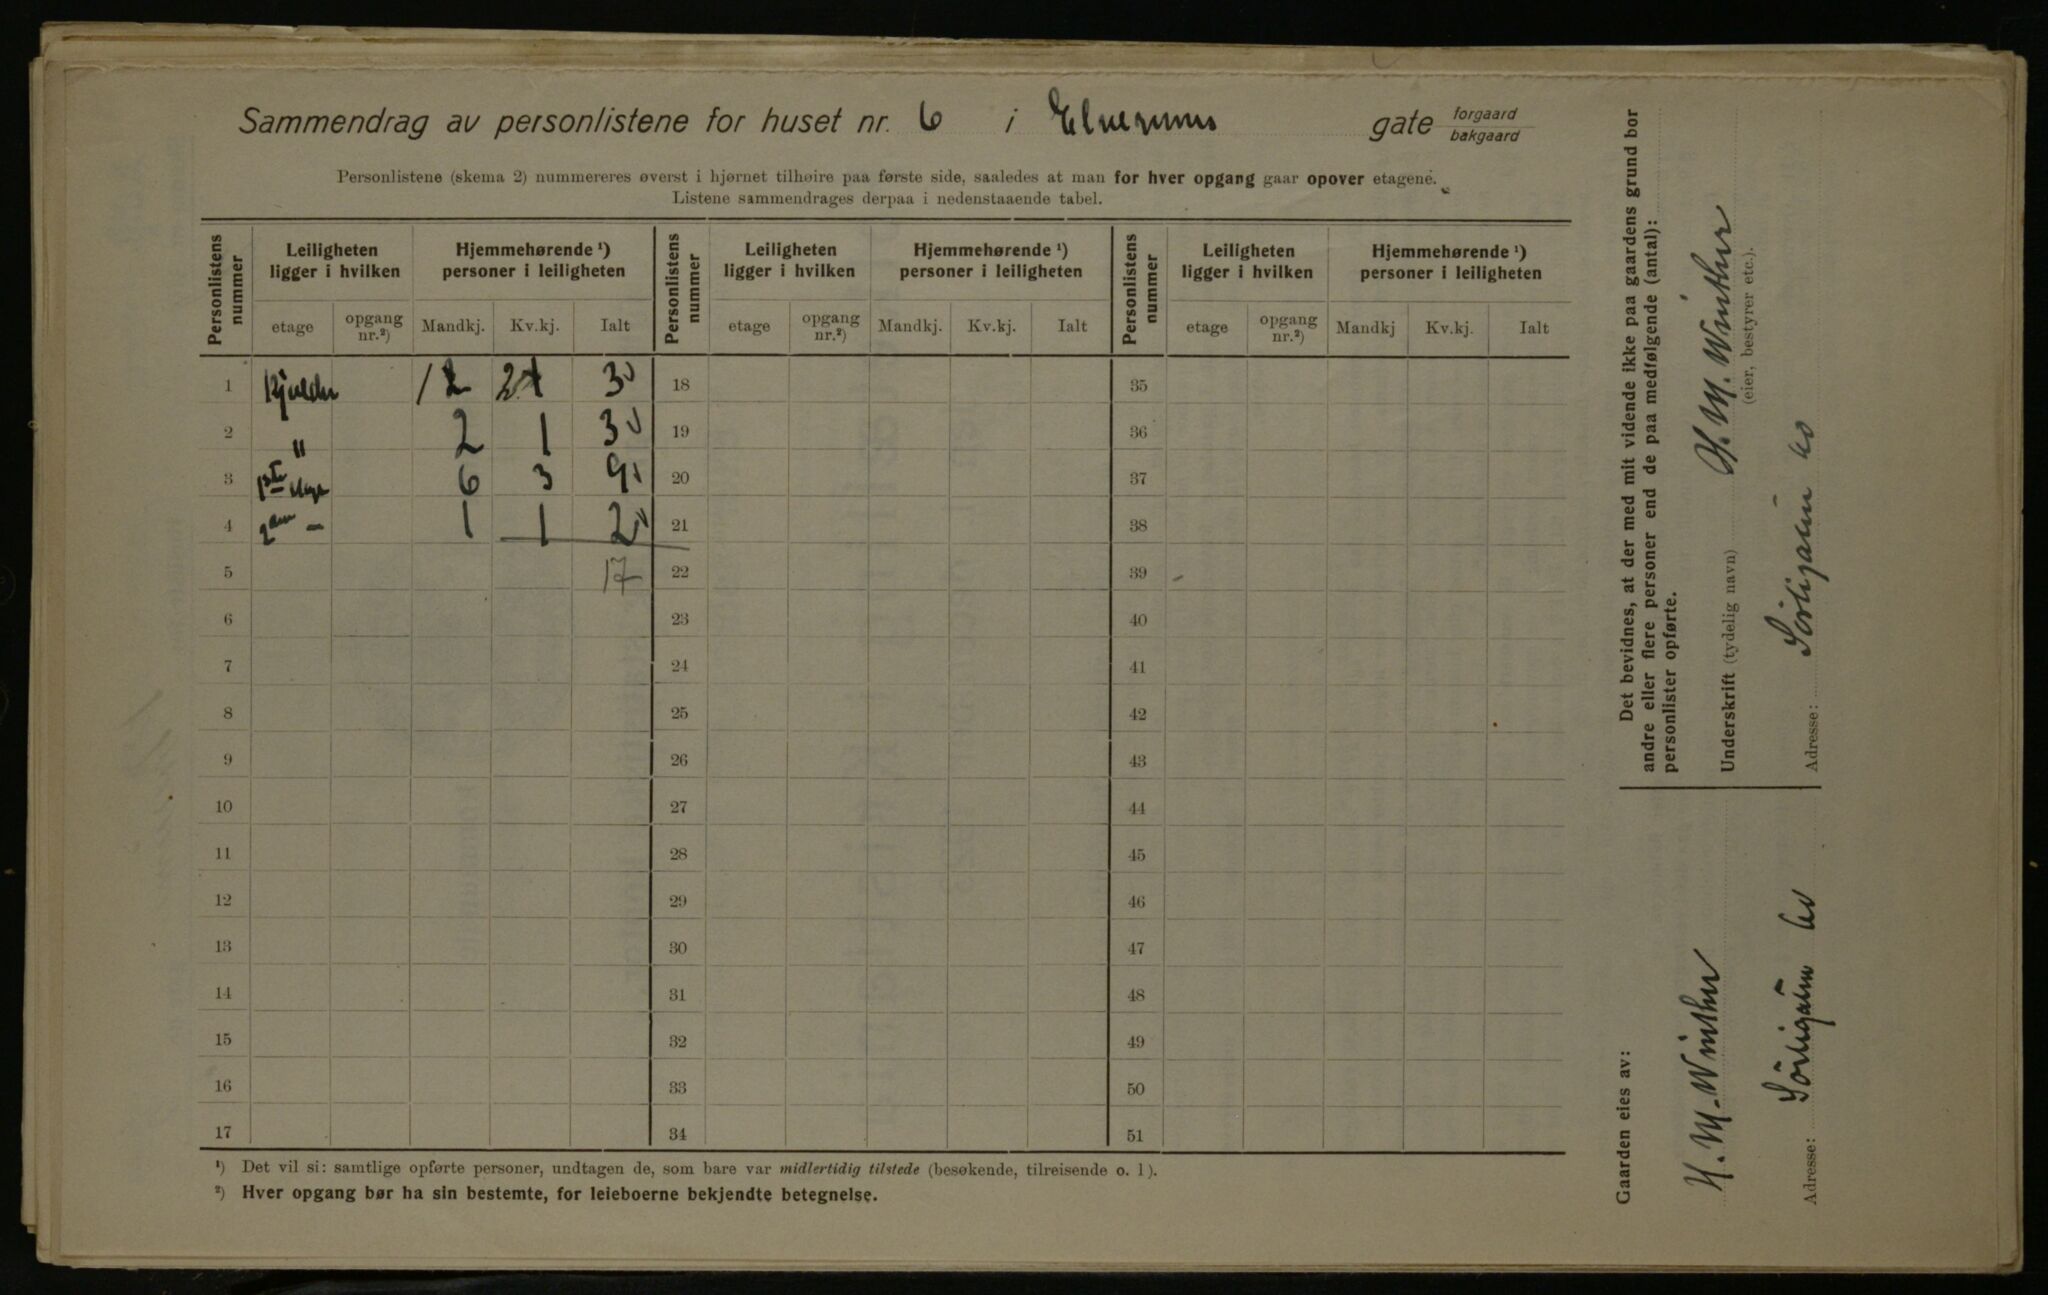 Sammendrag av personlistene for huset nr. 6 i Elverums gate forgaard
bakgaard
Personlistene (skema 2) nummereres øverst i hjørnet tilhøire paa første side, saaledes at man for hver opgang gaar opover etagene.
Listene sammendrages derpaa i nedenstaaende tabel.
Personlistens nummer Leiligheten ligger i hvilken Hjemmehørende ¹) personer i leiligheten Personlistens nummer Leiligheten ligger i hvilken Hjemmehørende ¹) personer i leiligheten Personlistens nummer Leiligheten ligger i hvilken Hjemmehørende ¹) personer i leiligheten
etage opgang nr.²) Mandkj. Kv.kj. Ialt etage opgang nr.²) Mandkj. Kv.kj. Ialt etage opgang nr.²) Mandkj Kv.kj. Ialt
1 Kjelder 1 2 2 1 3 18 35
2 " 2 1 3 19 36
3 1ste etage 6 3 9 20 37
4 2den — 1 1 2 21 38
5 17 22 39
6 23 40
7 24 41
8 25 42
9 26 43
10 27 44
11 28 45
12 29 46
13 30 47
14 31 48
15 32 49
16 33 50
17 34 51
¹) Det vil si: samtlige opførte personer, undtagen de, som bare var midlertidig tilstede (besøkende, tilreisende o. l).
²) Hver opgang bør ha sin bestemte, for leieboerne bekjendte betegnelse.
Det bevidnes, at der med mit vidende ikke paa gaardens grund bor
andre eller flere personer end de paa medfølgende (antal):
personlister opførte.
Underskrift (tydelig navn) H. M. Winther
(eier, bestyrer etc.).
Adresse: Sörligaten 60
Gaarden eies av:
H. M. Winther
Adresse: Sörligaten 60